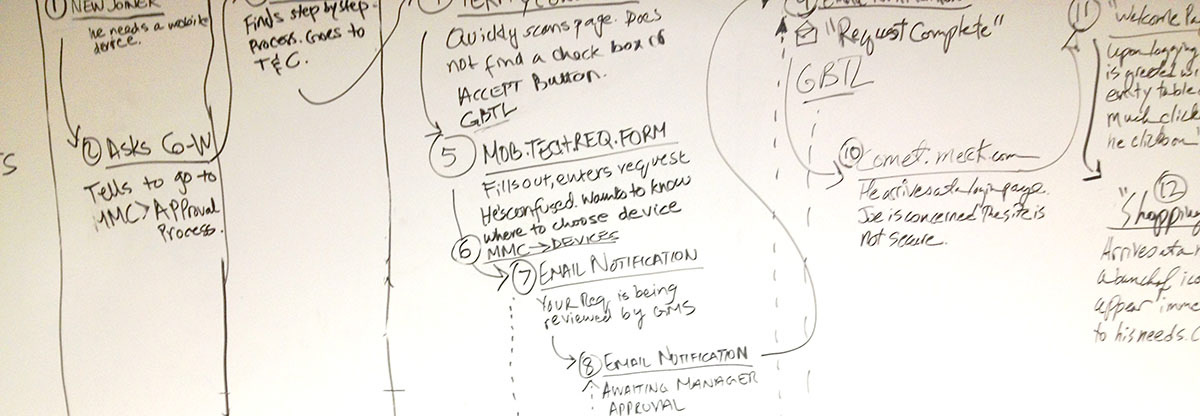 1 NEW JOINER
he needs a mobile
device.
2 Asks Co-W
Tells to go to
MMC > APProval
Process.
Finds step by step
Process. Goes to
T&C.
Quickly scans page. Does
not find a check box or
ACCEPT Button.
GBTL
5 MOB.TECH REQ. FORM
Fills out, enters request
He's confused. Wants to know
where to choose device
6 MMC → DEVICES
7 EMAIL NOTIFICATION
YOUR Req. is being
reviewed by GMS
8 EMAIL NOTIFICATION
AWAITING MANAGER
APPROVAL
9
"Request Complete"
GBTL
10 comet.merck.com
He arrives at a login page.
Joe is concerned the site is
not secure.
11
"Welcome Pa
Upon logging
is greeted wi
empty table
much click
he clicks on
12
"Shopping
Arrives at a
a bunch of ico
appear imme
to his needs. C